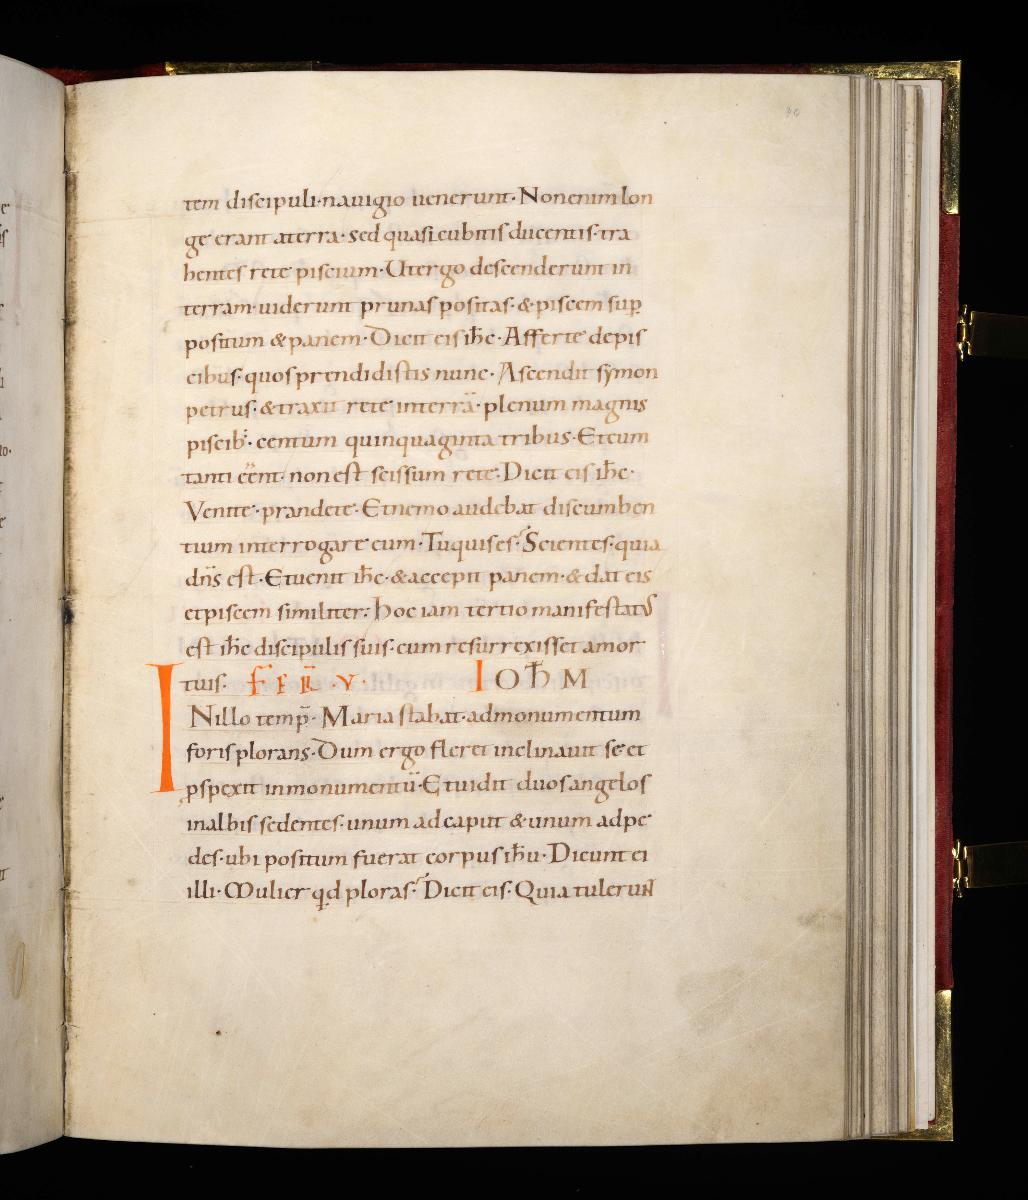 30
tem discipuli·nauigio uenerunt·Non enim lon
ge erant aterra·sed quasi cubitis ducentis·tra
hentes rete piscium·Ut ergo descenderunt in
terram·uiderunt prunas positas·& piscem sup̱
positum & panem·Dicit eis ih̅c·Afferte depis
cibus·quos prendidistis nunc·Ascendit symon
petrus·& traxit rete interrā·plenum magnis
piscib·centum quinquaginta tribus·Et cum
tanti eēnt·non est scissum rete·Dicit eis ih̅c·
Venite·prandete·Et nemo audebat discumben
tium interrogare eum·Tu quis es·Scientes·quia
dn̅s est·Et uenit ih̅c·& accepit panem·& dat eis
et piscem similiter·hoc iam tertio manifestatus
est ih̅c discipulis suis·cum resurrexisset amor
tuis·
IOH̅ M
INillo temp̅·Maria stabat·admonumentum
foris plorans·Dum ergo fleret inclinauit se et
pspexit inmonumentū·Et uidit duos angelos
inalbis sedentes·unum ad caput & unum adpe
des·ubi positum fuerat corpus ih̅u·Dicunt ei
illi·Mulier qd ploras·Dicit eis·Quia tulerunt